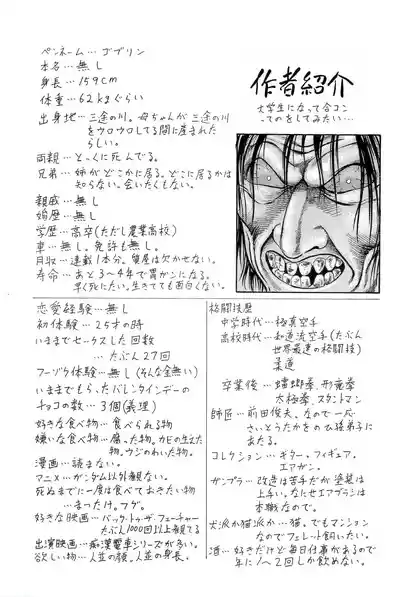 作者紹介
大学生になって合コン
ってのをしてみたい…
ペンネーム…ゴブリン
本名…無し
身長…159cm
体重…62kgぐらい
出身地…三途の川。母ちゃんが三途の川
をウロウロしてる間に産まれた
らしい。
両親…とっくに死んでる。
兄弟…姉がどこかに居る。どこに居るかは
知らない。会いたくもない。
親戚…無し
婚歴…無し
学歴…高卒(ただし農業高校)
車…無し。免許も無し。
月収…連載1本分。質屋は欠かせない。
寿命…あと3〜4年で胃がンになる。
早く死にたい。生きてても面白くない。
恋愛経験…無し
初体験…25才の時
いままでセークスした回数
…たぶん27回
フーゾク体験…無し(そんな金無い)
いままでもらったバレンタインデーの
チョコの数…3個(義理)
好きな食べ物…食べられる物
嫌いな食べ物…腐った物。カビの生えた
物。ウジのわいた物。
漫画…読まない。
アニメ…ガンダム以外観ない。
死ぬまでに一度は食べておきたい物
…まつたけ。フグ。
好きな映画…バック・トゥ・ザ・フューチャー
たぶん1000回以上観てる
出演映画…痴漢電車シリーズが多い。
欲しい物…人並の顔。人並の身長。
格闘技歴
中学時代…極真空手
高校時代…和道流空手(たぶん
世界最速の格闘技)
柔道
卒業後…蟷螂拳、形竜拳
太極拳、スタントマン
師匠…前田俊夫。なので一応
さいとうたかをのひ孫弟子に
あたる。
コレクション…ギター。フィギュア。
エアガン。
ガンプラ…改造は苦手だが塗装は
上手い。なにせエアブラシは
本職なので。
犬派か猫派か…猫。でもマンション
なのでフェレット飼いたい。
酒…好きだけど毎日仕事があるので
年に1〜2回しか飲めない。